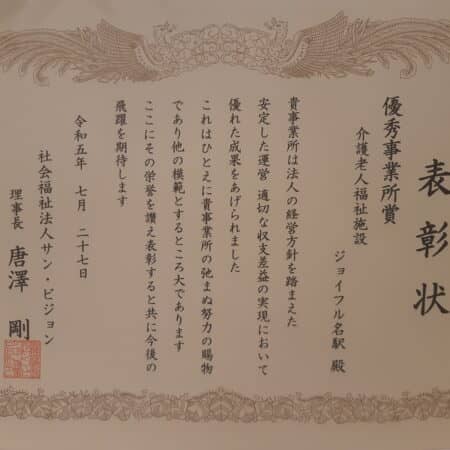 表彰状
優秀事業所賞
介護老人福祉施設
ジョイフル名駅 殿
貴事業所は法人の経営方針を踏まえた
安定した運営 適切な収支差益の実現において
優れた成果をあげられました
これはひとえに貴事業所の弛まぬ努力の賜物
であり他の模範とするところ大であります
ここにその栄誉を讃え表彰すると共に今後の
飛躍を期待します
令和五年 七月 二十七日
社会福祉法人サン・ビジョン
理事長 唐澤 剛